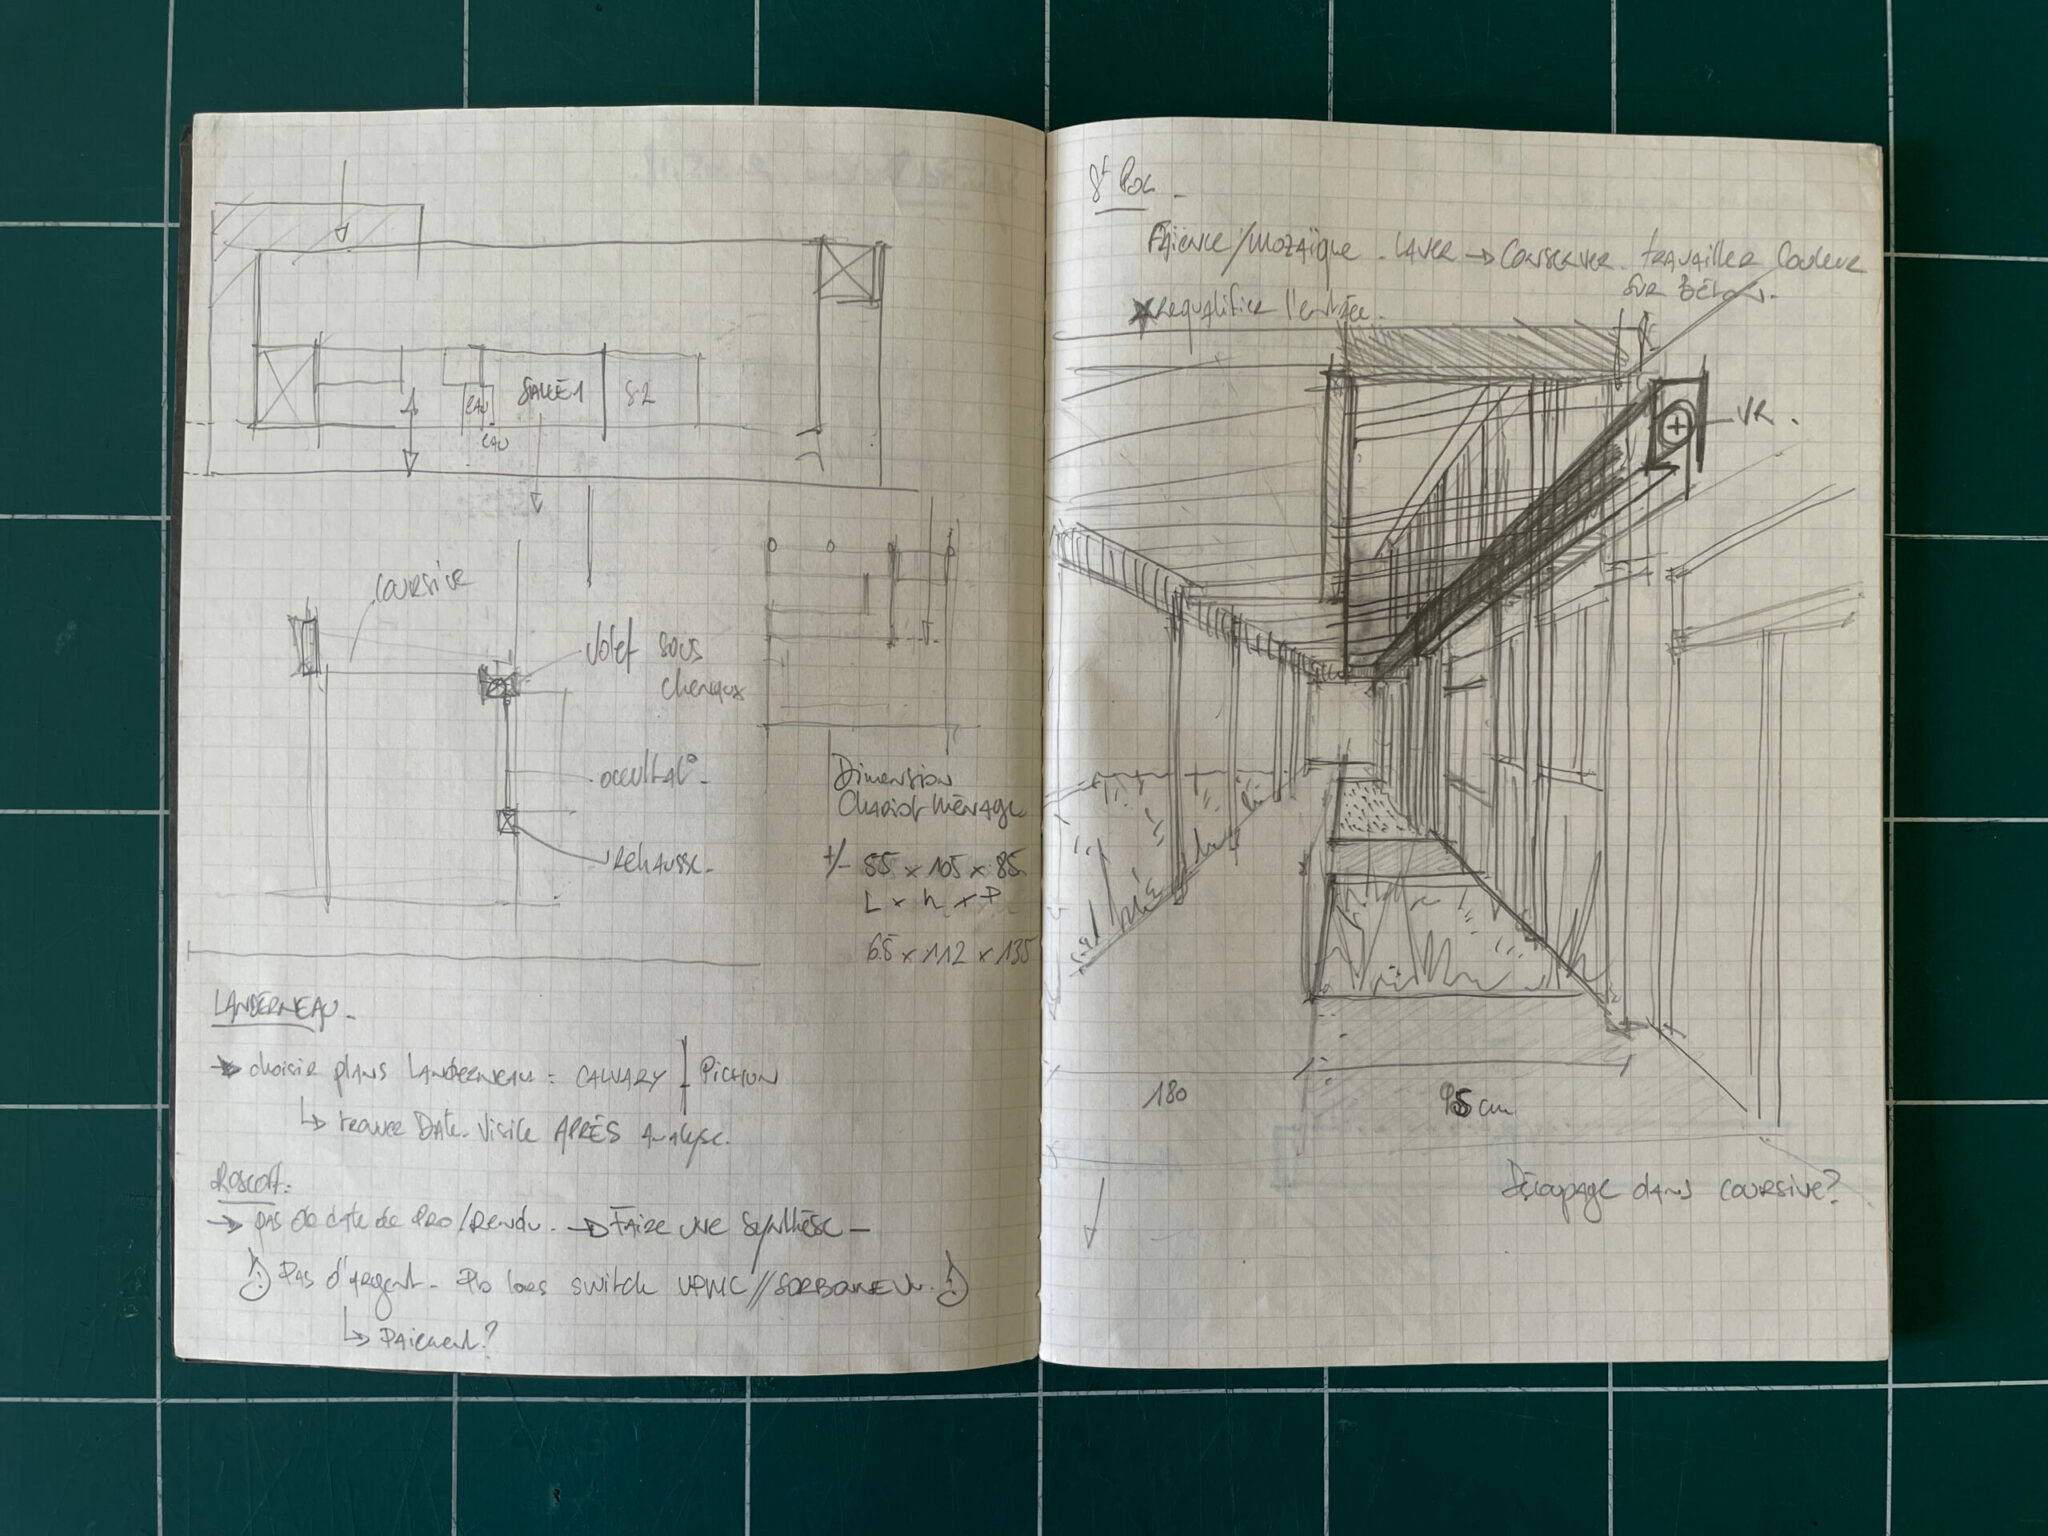 SALLE 1
S2
EAU
EAU
coursive
Volet sous
cheneaux
occultat°-
Rehausse-
Dimension
Chariot Ménage
+/- 55 x 105 x 85
L x h x P
65 x 112 x 135
LANDERNEAU-
→ choisir plans Landerneau = CALVARY | PICHON
↳ Date Visite APRÈS Analyse.
Roscoff:
→ pas de date de PRO/Rendu. → FAIRE UNE Synthèse -
Pas d'argent - Pb lors switch UPMC // SORBONNE Un.
↳ Paiement?
St POL -
Faïence/Mozaïque - LAVER → Conserver. travailler Couleur
SUR BÉTON-
requalifier l'entrée.
VR.
180
95 cm
Découpage dans coursive?